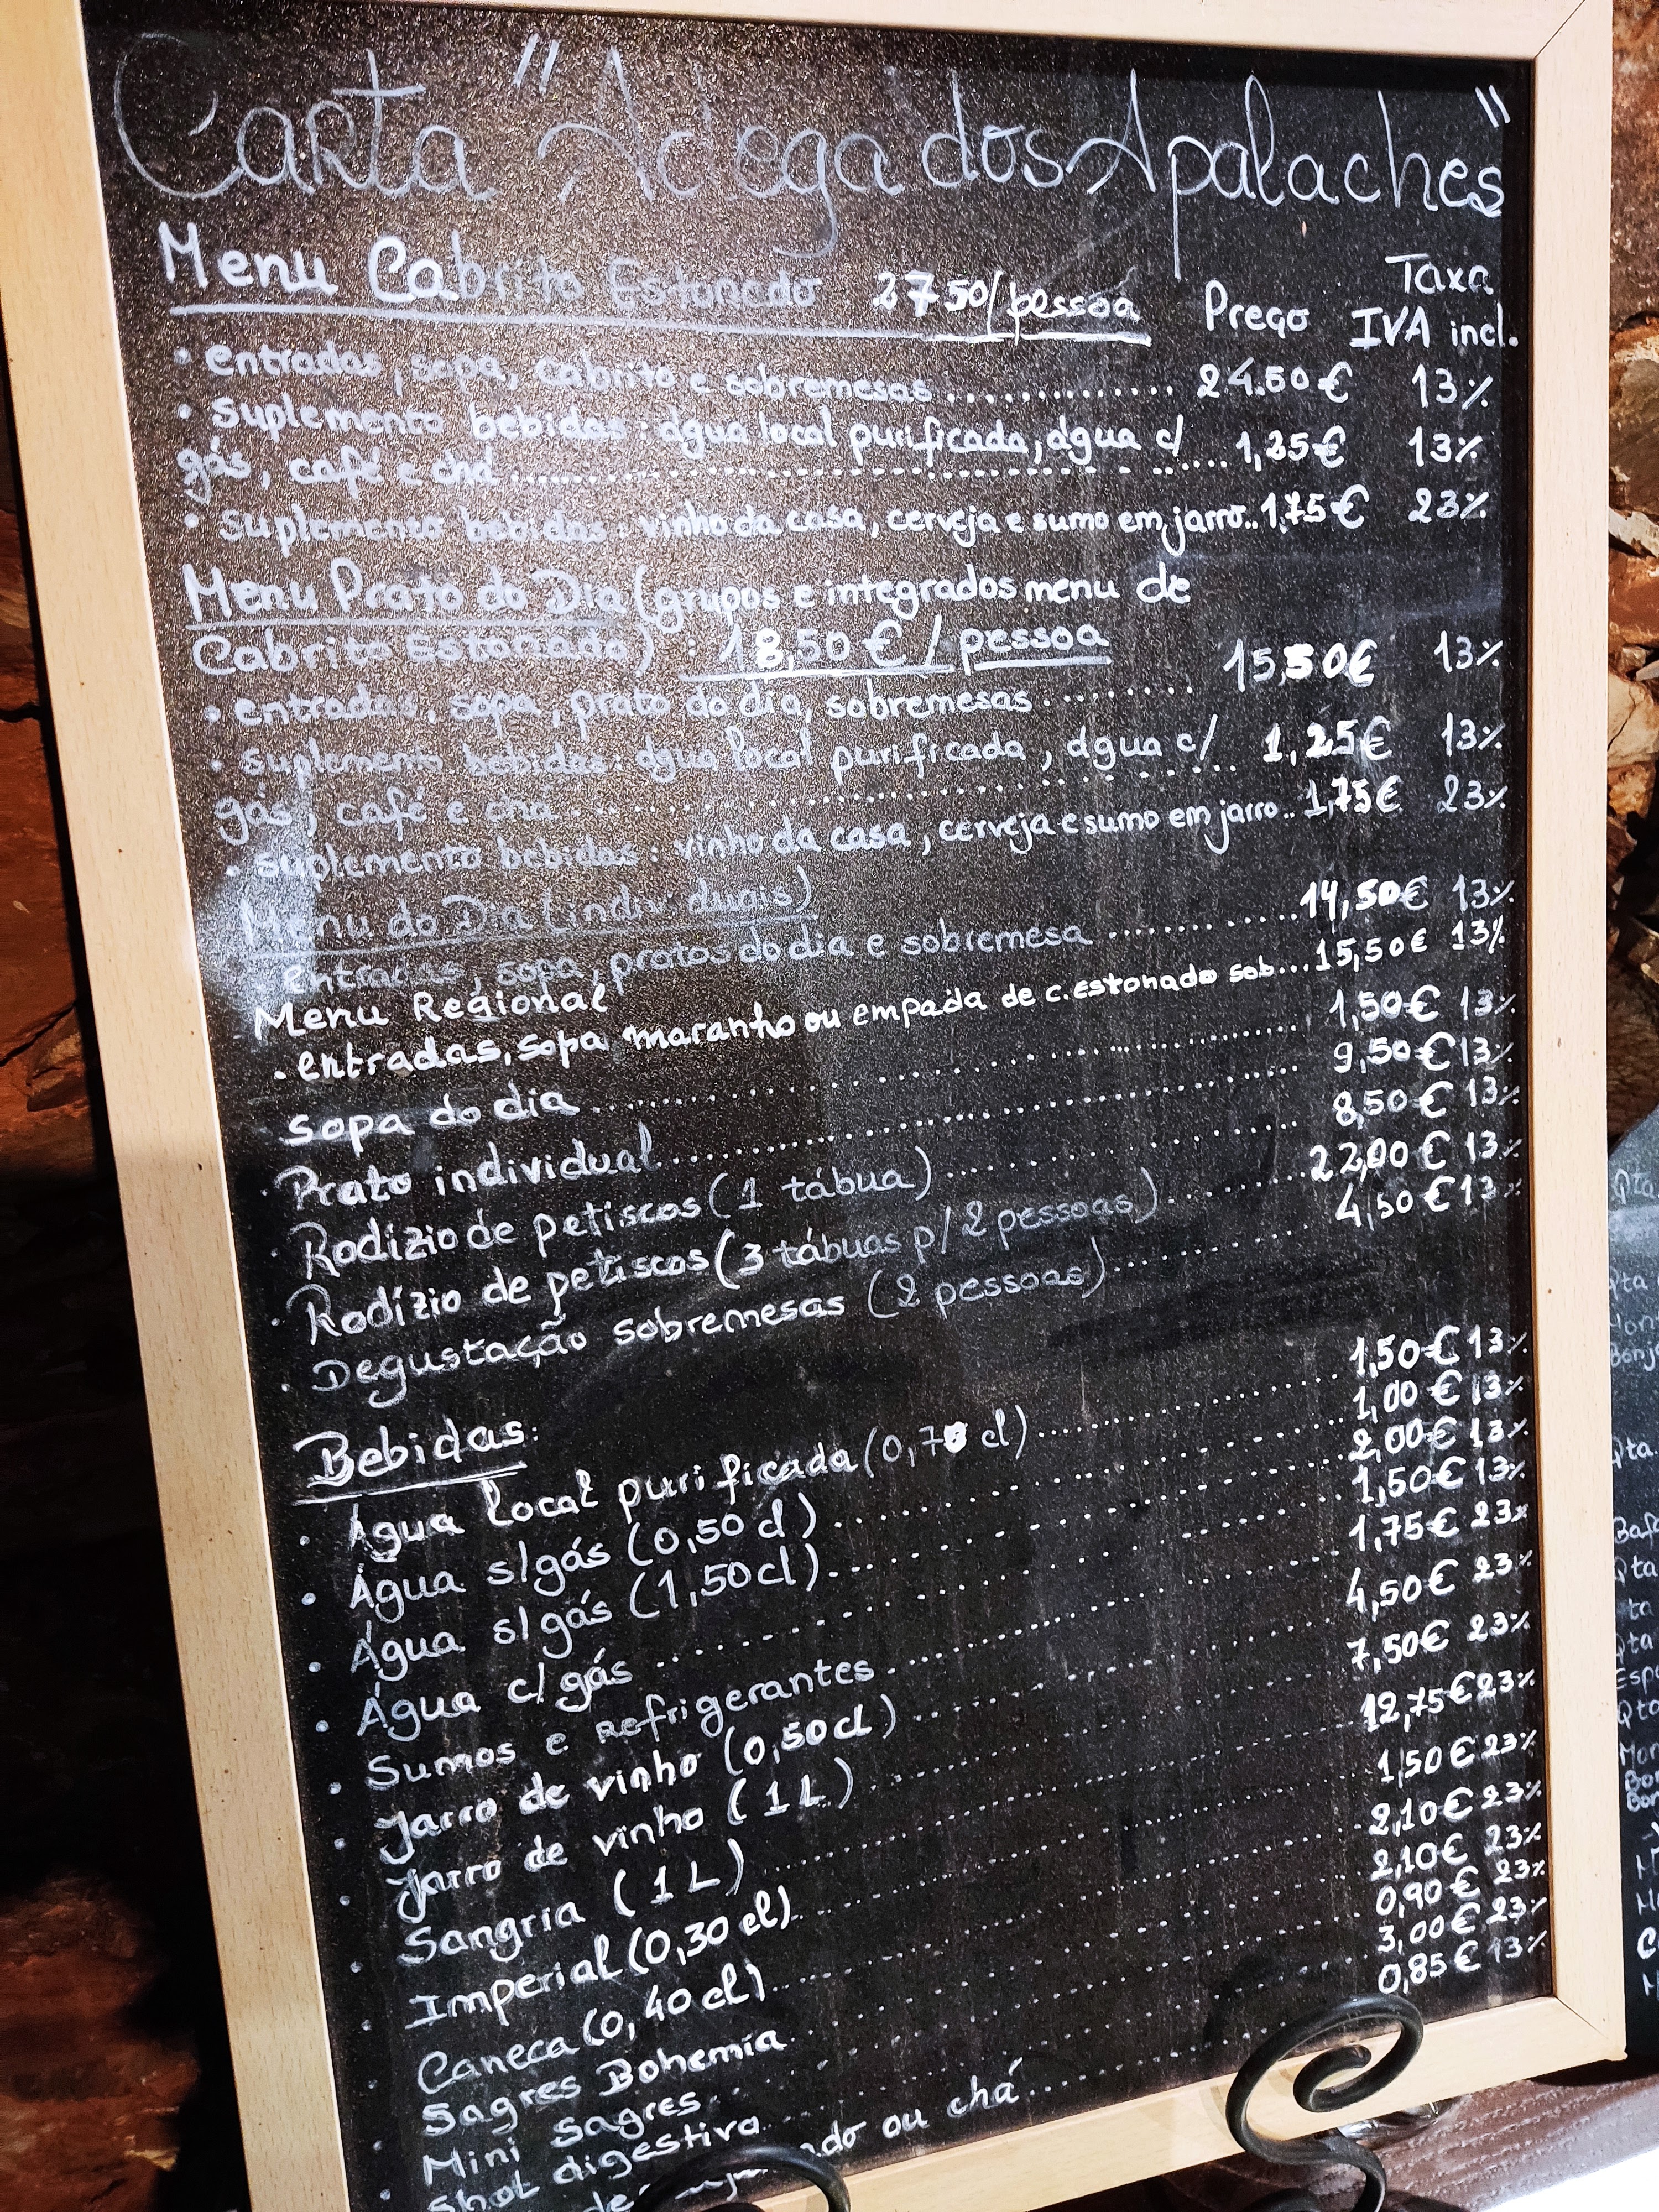 Carta "Adega dos Apalaches"
Menu Cabrito Estonado 27 50/pessoa Preço Taxa IVA incl.
• entradas, sopa, cabrito e sobremesas .............. 24.50€ 13%
• suplemento bebidas: água local purificada, água c/
gás, café e chá .............. 1,25€ 13%
• suplemento bebidas: vinho da casa, cerveja e sumo em jarro.. 1,75€ 23%
Menu Prato do Dia (grupos e integrados menu de
Cabrito Estonado) : 18,50 € / pessoa
• entradas, sopa, prato do dia, sobremesas ........ 15,50€ 13%
• suplemento bebidas: água local purificada, água c/
gás, café e chá .............. 1,25€ 13%
• suplemento bebidas: vinho da casa, cerveja e sumo em jarro.. 1,75€ 23%
Menu do Dia (individuais)
• entradas, sopa, pratos do dia e sobremesa ........ 14,50€ 13%
Menu Regional
• entradas, sopa maranho ou empada de c. estonado sob... 15,50€ 13%
Sopa do dia .............. 1,50€ 13%
• Prato individual .............. 9,50€ 13%
• Rodízio de petiscos (1 tábua) .............. 8,50€ 13%
• Rodízio de petiscos (3 tábuas p/ 2 pessoas) ........ 22,00€ 13%
• Degustação sobremesas (2 pessoas) ........ 4,50€ 13%
Bebidas:
• Água local purificada (0,70 cl) .............. 1,50€ 13%
• Água s/gás (0,50 cl) .............. 1,00€ 13%
• Água s/gás (1,50 cl) .............. 2,00€ 13%
• Água c/ gás .............. 1,50€ 13%
• Sumos e refrigerantes .............. 1,75€ 23%
• Jarro de vinho (0,50 cl) .............. 4,50€ 23%
• Jarro de vinho (1 L) .............. 7,50€ 23%
• Sangria (1 L) .............. 12,75€ 23%
• Imperial (0,30 cl) .............. 1,50€ 23%
• Caneca (0,40 cl) .............. 2,10€ 23%
• Sagres Bohemia .............. 2,10€ 23%
• Mini Sagres .............. 0,90€ 23%
• Shot digestivo .............. 3,00€ 23%
ou chá .............. 0,85€ 13%